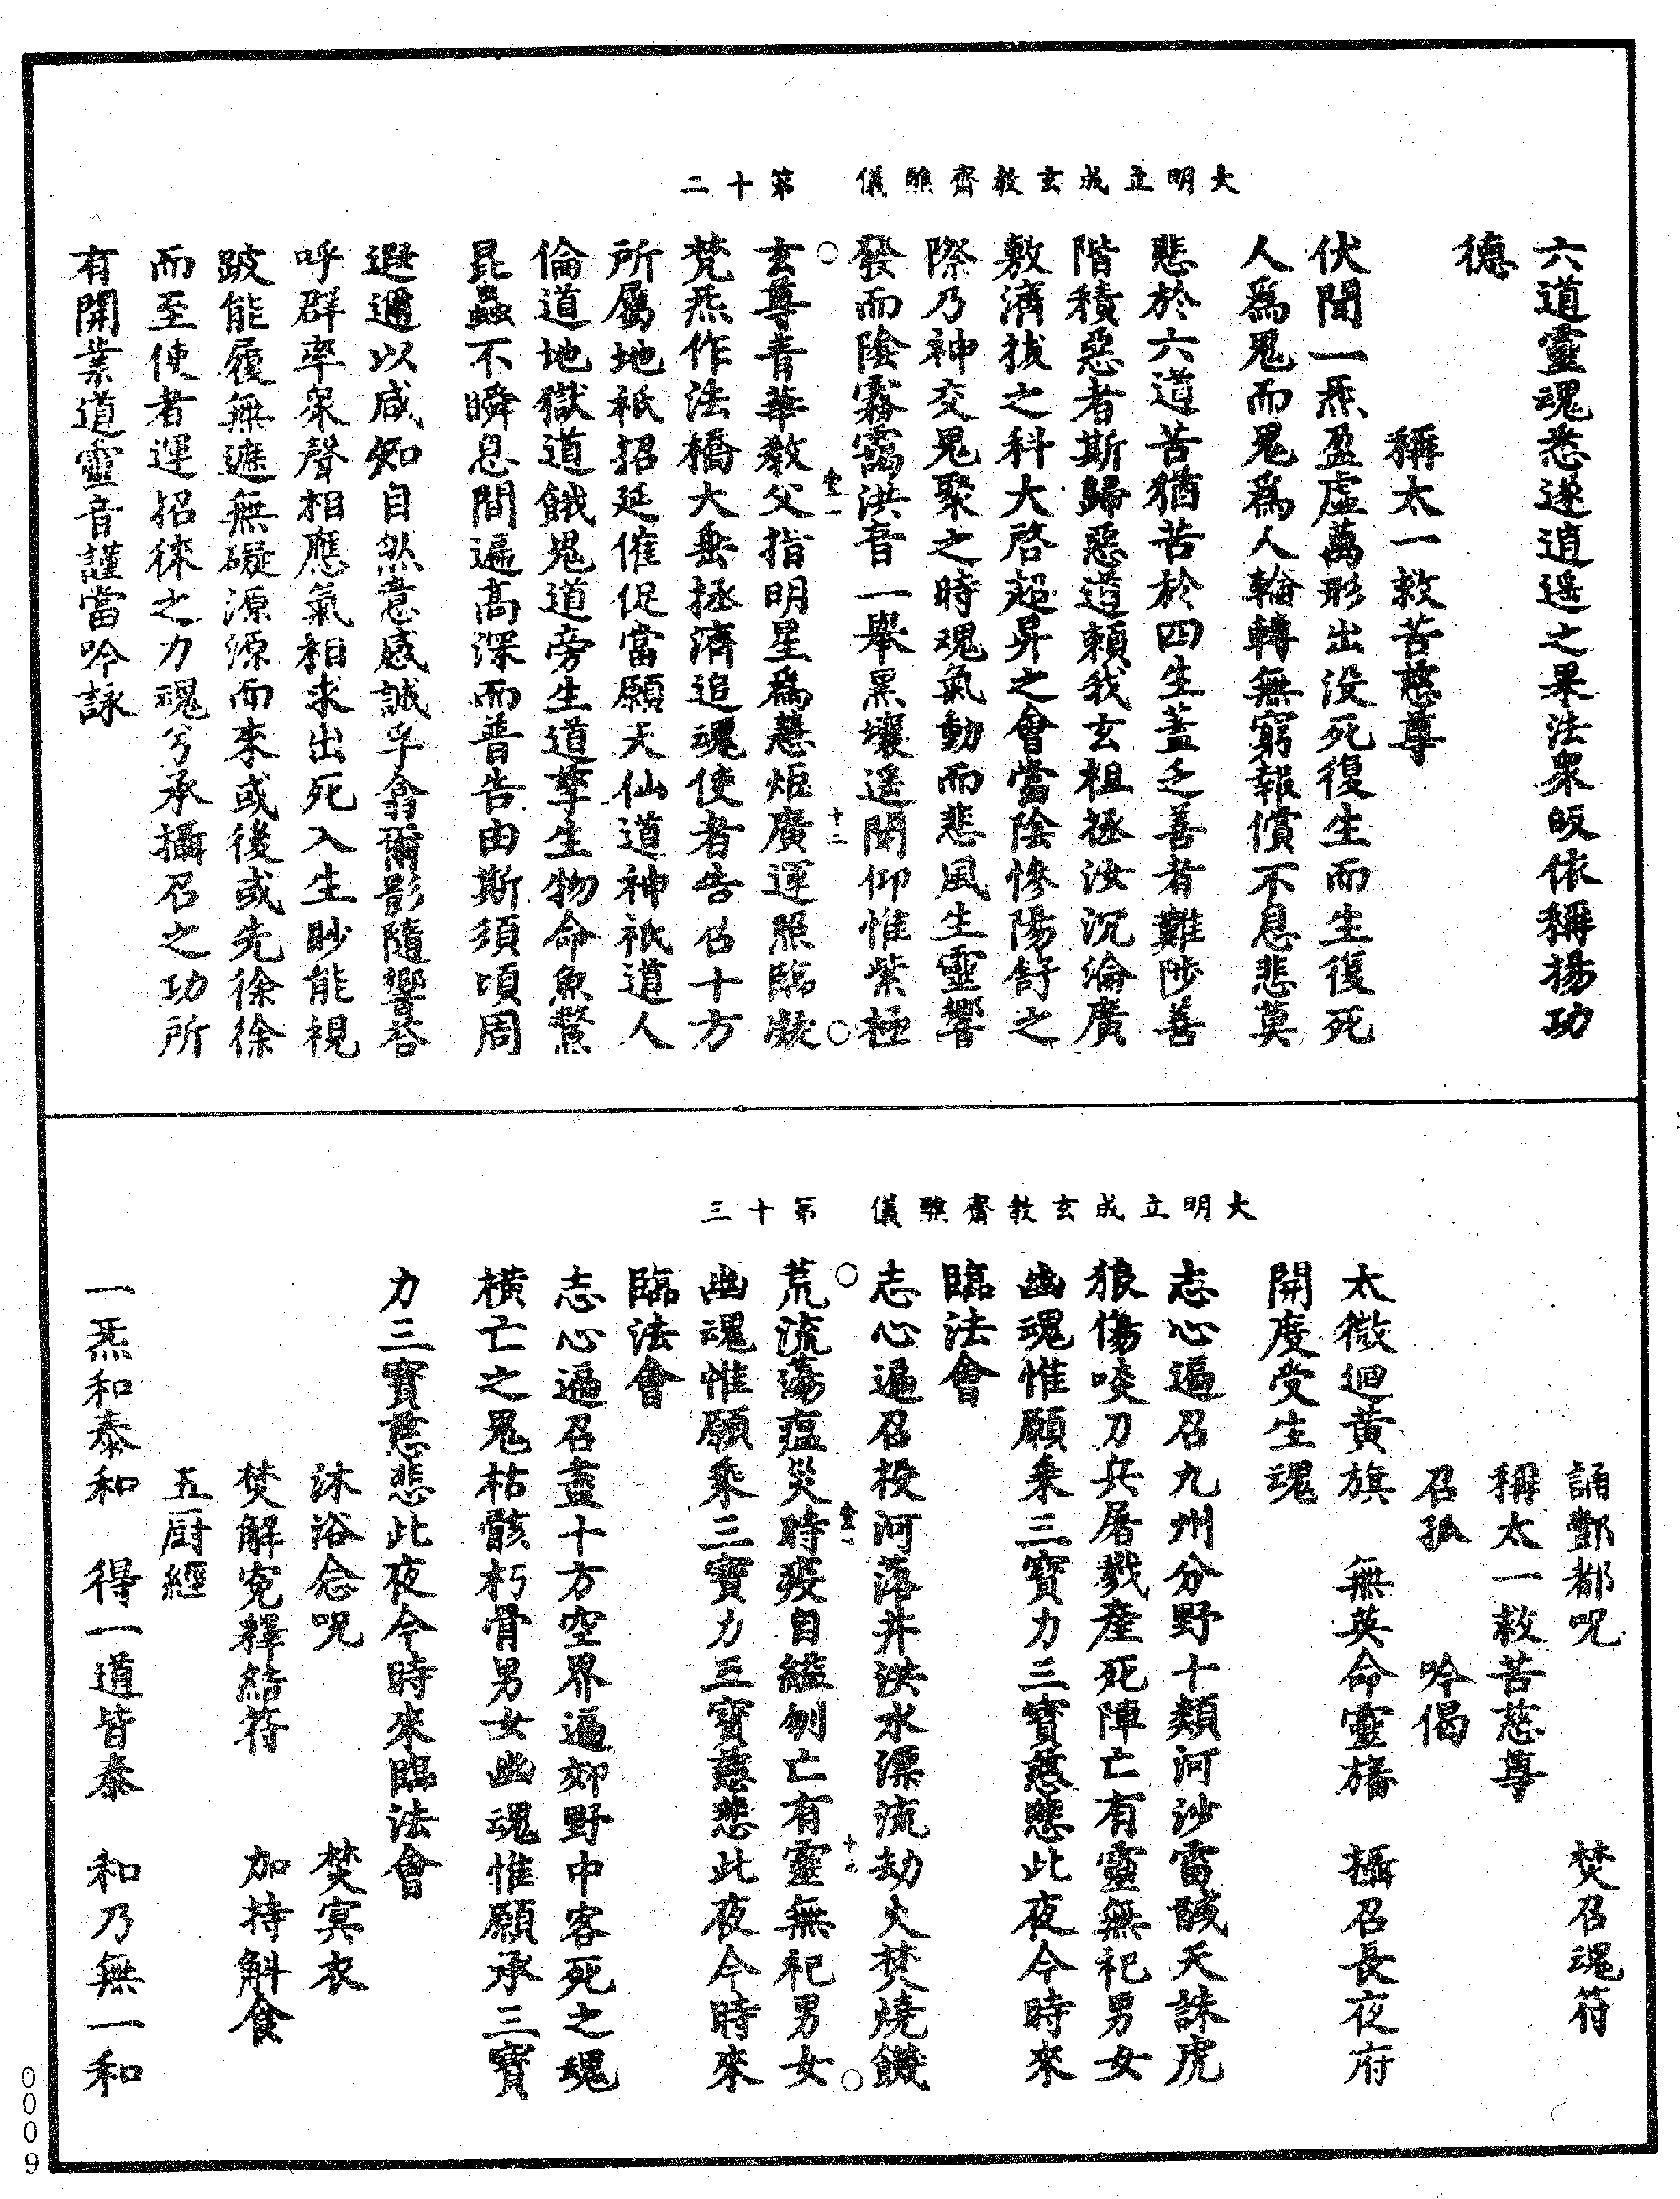 大明立成玄教齋醮儀　第十二
六道靈魂悉遂逍遥之果法眾皈依稱揚功
德
稱太一救苦慈尊
伏聞一炁盈虛萬形出没死復生而生復死
人爲鬼而鬼爲人輪轉無窮報償不息悲莫
悲於六道苦猶苦於四生蓋乏善者難陟善
階積惡者斯歸惡道頼我玄祖拯汝沉淪廣
敷濟拔之科大啓超昇之會當陰慘陽舒之
際乃神交鬼聚之時魂氣動而悲風生靈響
發而陰霧靄洪音一舉黑壤遥聞仰惟紫極
玄尊青華教父指明星爲慧炬廣運照臨凝
梵炁作法橋大垂拯濟追魂使者告召十方
所屬地祇招延催促當願天仙道神祇道人
倫道地獄道餓鬼道旁生道孳生物命魚鱉
昆蟲不瞬息間遍高深而普告由斯須頃周
遐邇以咸知自然意感誠孚翕爾影隨響答
呼群率衆聲相應氣相求出死入生眇能視
跛能履無遮無礙源源而來或後或先徐徐
而至使者運招徠之力魂兮承攝召之功所
有開業道靈音謹當吟詠
大明立成玄教齋醮儀　第十三
誦酆都呪　焚召魂符
稱太一救苦慈尊
召孤　吟偈
太微迴黃旗　無英命靈旛　攝召長夜府
開度受生魂
志心遍召九州分野十類河沙雷誠天誅虎
狼傷啖刀兵屠戮產死陣亡有靈無祀男女
幽魂惟願乘三寶力三寶慈悲此夜今時來
臨法會
志心遍召投河落井洪水漂流劫火焚燒饑
荒流蕩瘟災時疫自縊刎亡有靈無祀男女
幽魂惟願乘三寶力三寶慈悲此夜今時來
臨法會
志心遍召盡十方空界遍郊野中客死之魂
橫亡之鬼枯骸朽骨男女幽魂惟願承三寶
力三寶慈悲此夜今時來臨法會
沐浴合呪　焚寃衣
焚解寃釋結符　加持斛食
五厨經
一炁和泰和　得一道皆泰　和乃無一和
0009